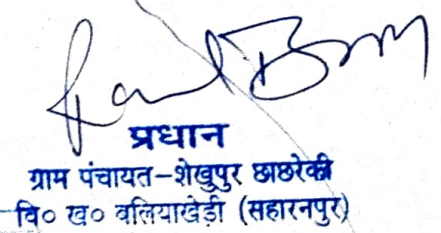 प्रधान
ग्राम पंचायत-शेखुपुर छाछरेकी
वि० ख० बलियाखेड़ी (सहारनपुर)